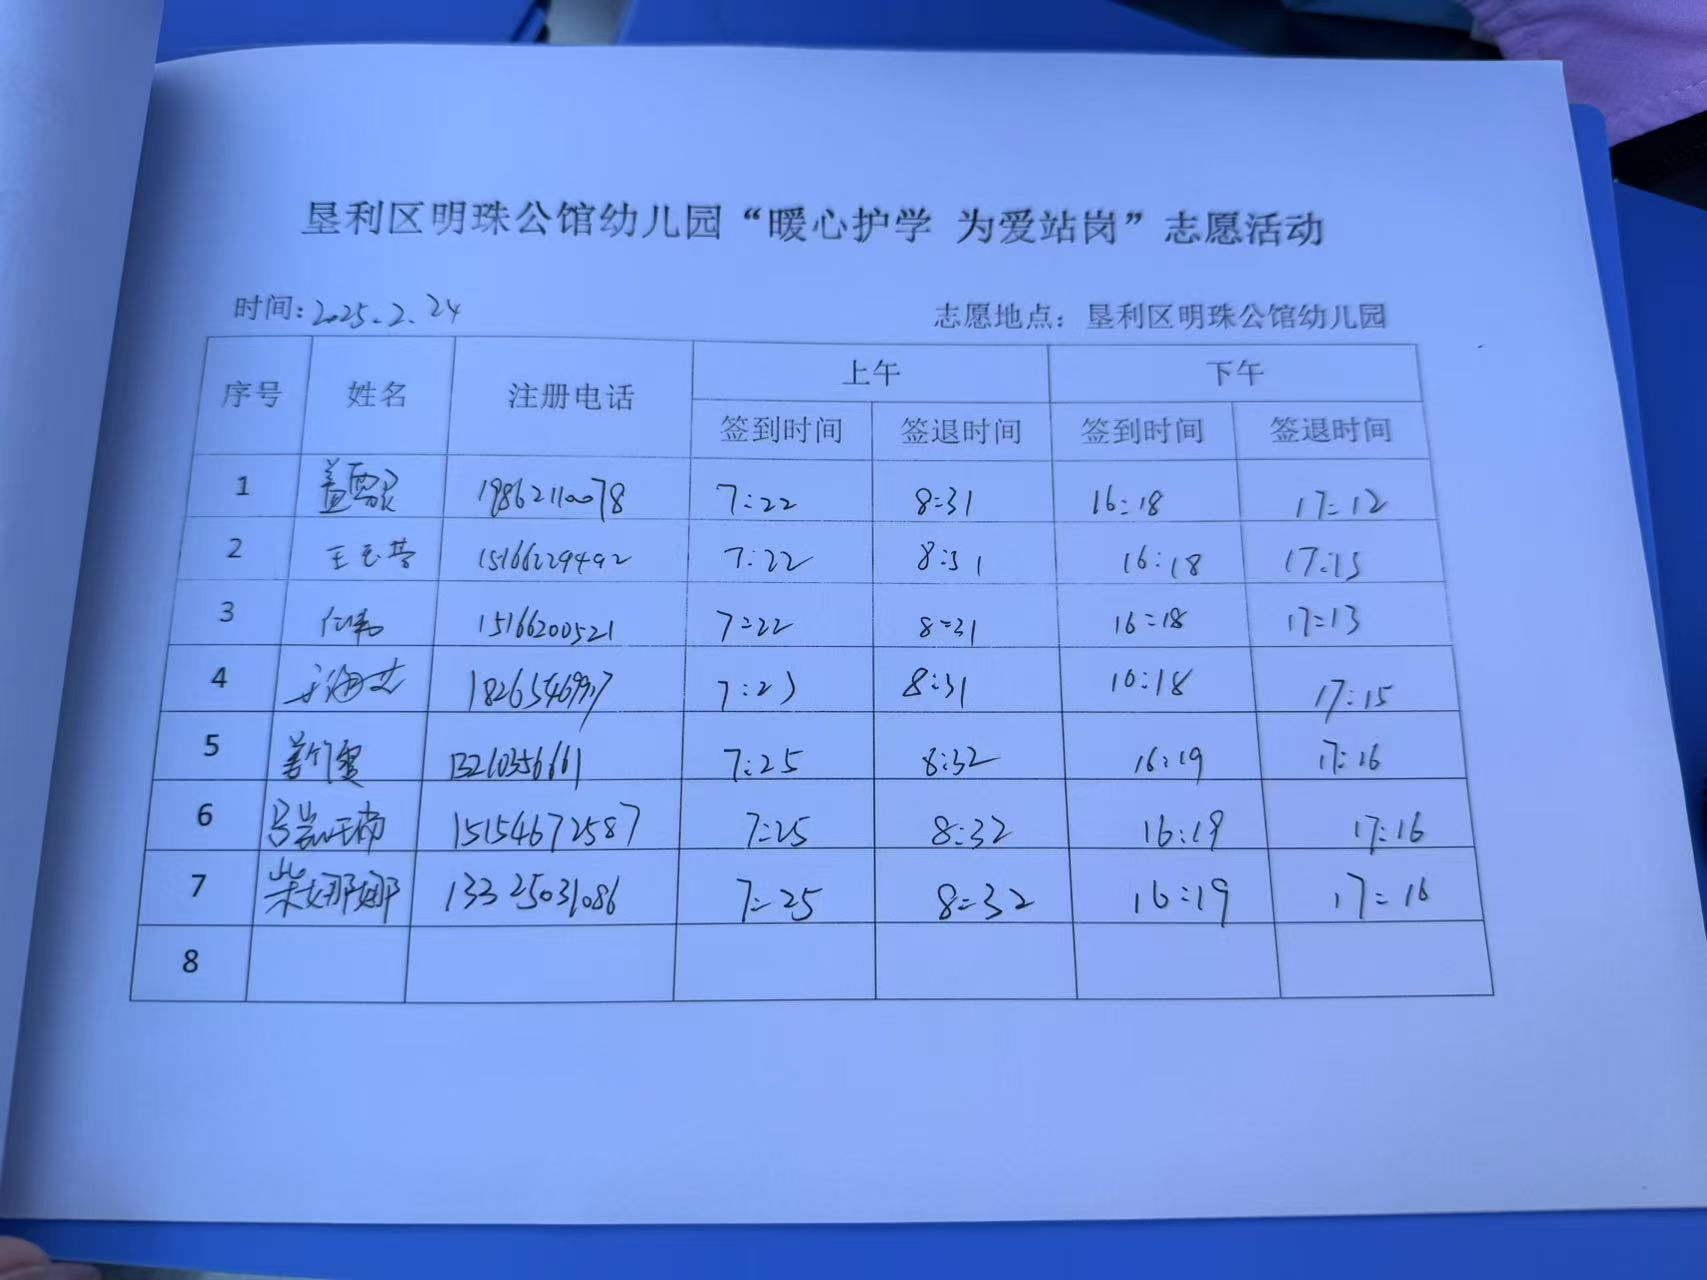 垦利区明珠公馆幼儿园“暖心护学 为爱站岗”志愿活动
时间:2025.2.24 志愿地点：垦利区明珠公馆幼儿园
序号 姓名 注册电话 上午 下午
签到时间 签退时间 签到时间 签退时间
1 19862110078 7:22 8:31 16:18 17:12
2 王玉芬 15166229492 7:22 8:31 16:18 17:15
3 15166200521 7:22 8:31 16:18 17:13
4 7:23 8:31 16:18 17:15
5 姜竹雪 13210356661 7:25 8:32 16:19 17:16
6 15154672587 7:25 8:32 16:19 17:16
7 柴娜娜 13325031086 7:25 8:32 16:19 17:16
8